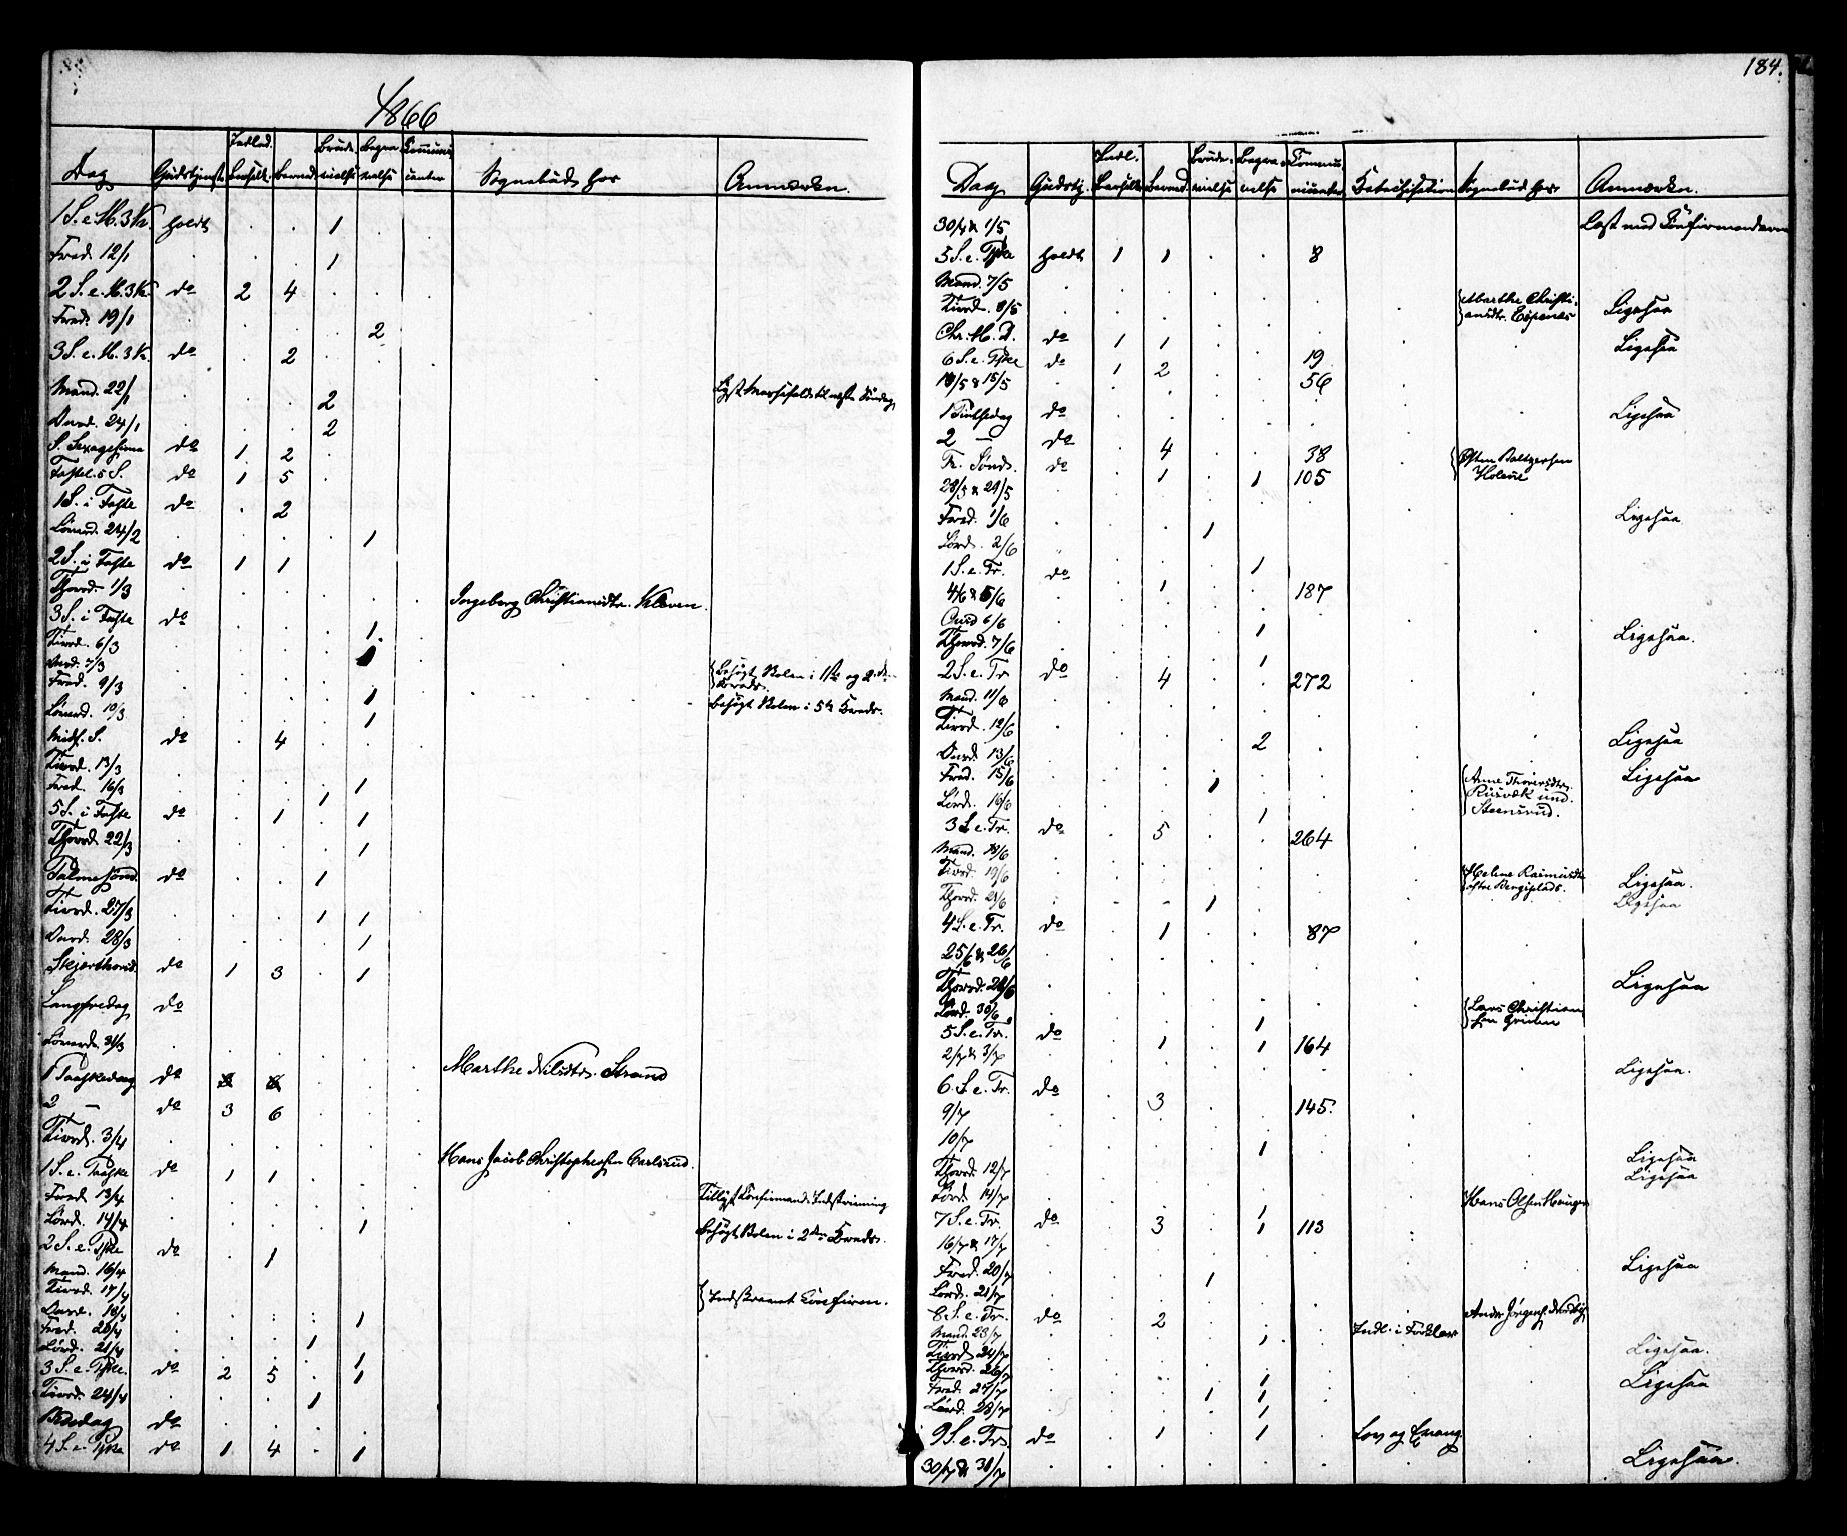 1866
Dag Gudstjenest. Indled. Barselk. Børned. Brude-vielse Begra-velse Communi-canter Sognebud hos Anmærkn.
1 S. e. H. 3 K. holdt . . 1 .
Fred. 12/1 . . . 1 .
2 S. e. H. 3 K. do 2 4 . . .
Fred. 19/1 . . . . 2
3 S. e. H. 3 K. do . 2 . . .
Mand. 22/1 . . . 2 . Lyst til næste Søndag
Onsd. 24/1 . . . 2
S. Sexagesima do 1 2 .
Fastel. S. do 1 5 .
1 S. i Faste do . 2
Løverd. 24/2 . . . . 1
2 S. i Faste do 1 1
Thorsd. 1/3 . . . . . Ingeborg Christiansdtr. Kleven.
3 S. i Faste do
Tirsd. 6/3 . . . . 1
Onsd. 7/3 . . . . 1
Fred. 9/3 . . . . . Besøgt Skolen i 1ste og 2den Kreds.
Lørverd. 10/3 . . . . 1 Besøgt Skolen i 5te Kreds.
Midf. S. do . 4 . 1
Tirsd. 13/3
Fred. 16/3 . . . 1 1
5 S. i Faste do . 1 . 1
Thorsd. 22/3 . . . . 1
Palmesønd. do . . 1
Tirsd. 27/3 . . . 1 1
Onsd. 28/3 . . . . 1
Skjærthorsd. do 1 3 . 1
Langfredag do
Løverd. 31/3 . . . . . Marthe Nilsdtr. Strand
1 Paaskedag do
2 — do 3 6 . .
Tirsd. 3/4 . . . . . Hans Jacob Christophersen Carlsrud.
1 S. e. Paaske do 1 1 . .
Fred. 13/4 . . . . . Tillyst Confirmand Indskrivning
Lørd. 14/4 . . . . 1 Besøgt Skolen i 2den Kreds.
2 S. e. Pske do . 1
Mand. 16/4
Tirsd. 17/4 Indskrevet Confirm.
Onsd. 18/4 . . . . 1
Fred. 20/4 . . . 1
Lørd. 21/4 . . . . 1
3 S. e. Pske. do 2 5 . 1
Tirsd. 24/4 . . . 1
Bededag do . .
4 S. e. Pske do 1 4 . 1
184.
Dag Gudstj. Indl. Barselk. Børned. Brude-vielse Begra-velse Commu-nicanter Katechisation Sognebud hos Anmærkn.
30/4 & 1/5 Læst med Confirmanderne
5 S. e. Pske holdt 1 1 . . 8
Mand. 7/5
Tirsd. 8/5 . . . . . . Marthe Christi-ansdtr. Espenæs Ligesaa
Chr. H. D. do 1 1 . Ligesaa
6 S. e. Pske do 1 2 . . 19
14/5 & 15/5 . . . . . 56
1 Pintsedag do Ligesaa
2 — do . 4 . . 38
Tr. Sønd. do . 1 . 1 105 Østen Baltzersen Holene
28/5 & 29/5
Fred. 1/6 . . . 1 Ligesaa
Lørd. 2/6 . . . . 1
1 S. e. Tr. do . 1 . . 187
4/6 & 5/6
Onsd 6/6 . . . . 1
Thorsd. 7/6 . . . . 1 Ligesaa.
2 S. e. Tr do . 4 . . 272
Mand. 11/6
Tirsd. 12/6 . . . . 2 . Ligesaa
Onsd. 13/6
Fred. 15/6 . . . 1 Anne Thoresdtr. Rusvæk und. Steensrud. Ligesaa
Lørd. 16/6 . . . . 1
3 S. e. Tr. do . 5 . . 264
Mand. 18/6
Tirsd. 19/6 Helene Rasmusdtr. Ligesaa.
Thorsd. 21/6 . . . 1 . Ligesaa
4 S. e. Tr. do . 1 . . 87
25/6 & 26/6
Thorsd. 28/6 Ligesaa
Lørd. 30/6 . . . . 1 Lars Christian-sen
5 S. e. Tr. do . 1 . 1 164
2/7 & 3/7 Ligesaa.
6 S. e. Tr. do . 3 . . 145.
9/7
10/7 . . . . 1 Ligesaa
Thorsd. 12/7 Ligesaa
Lørd. 14/7 . . . . 1 Hans Olsen Haugen
7 S. e. Tr. do . 3 . 1 113
16/7 & 17/7
Fred. 20/7 . . . 1 Ligesaa
Lørd. 21/7
8 S. e. Tr. do . 2 . . . Indl. i Forklar
Mand. 23/7 . . . . 1
Tirsd. 24/7 Ligesaa.
Thorsd. 26/7 . . . . 1
Fred. 27/7 . . . 1 1 Ligesaa
Lørd. 28/7 . . . . 1
9 S. e. Tr. do . 1 . 1 . Lov og Evang.
30/7 & 31/7 . . . . . . . Ligesaa.